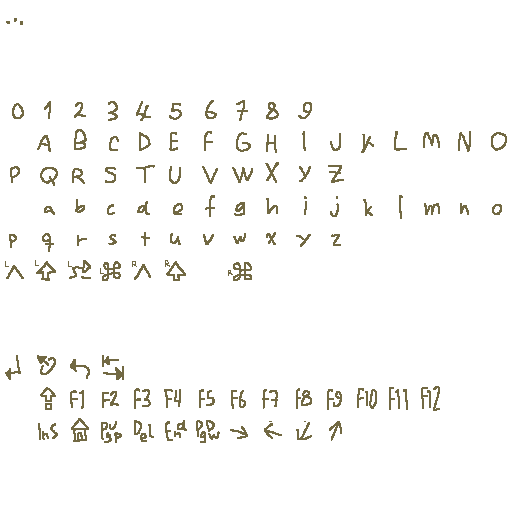 ...
0 1 2 3 4 5 6 7 8 9
A B C D E F G H I J K L M N O
P Q R S T U V W X Y Z
a b c d e f g h i j k l m n o
p q r s t u v w x y z
L^ L⇧ L⌥ L⌘ R^ R⇧ R⌘
↵ ⎋ ↩ ↹
⇪ F1 F2 F3 F4 F5 F6 F7 F8 F9 F10 F11 F12
Ins ⌂ PgUp Del End PgDw → ← ↙ ↗